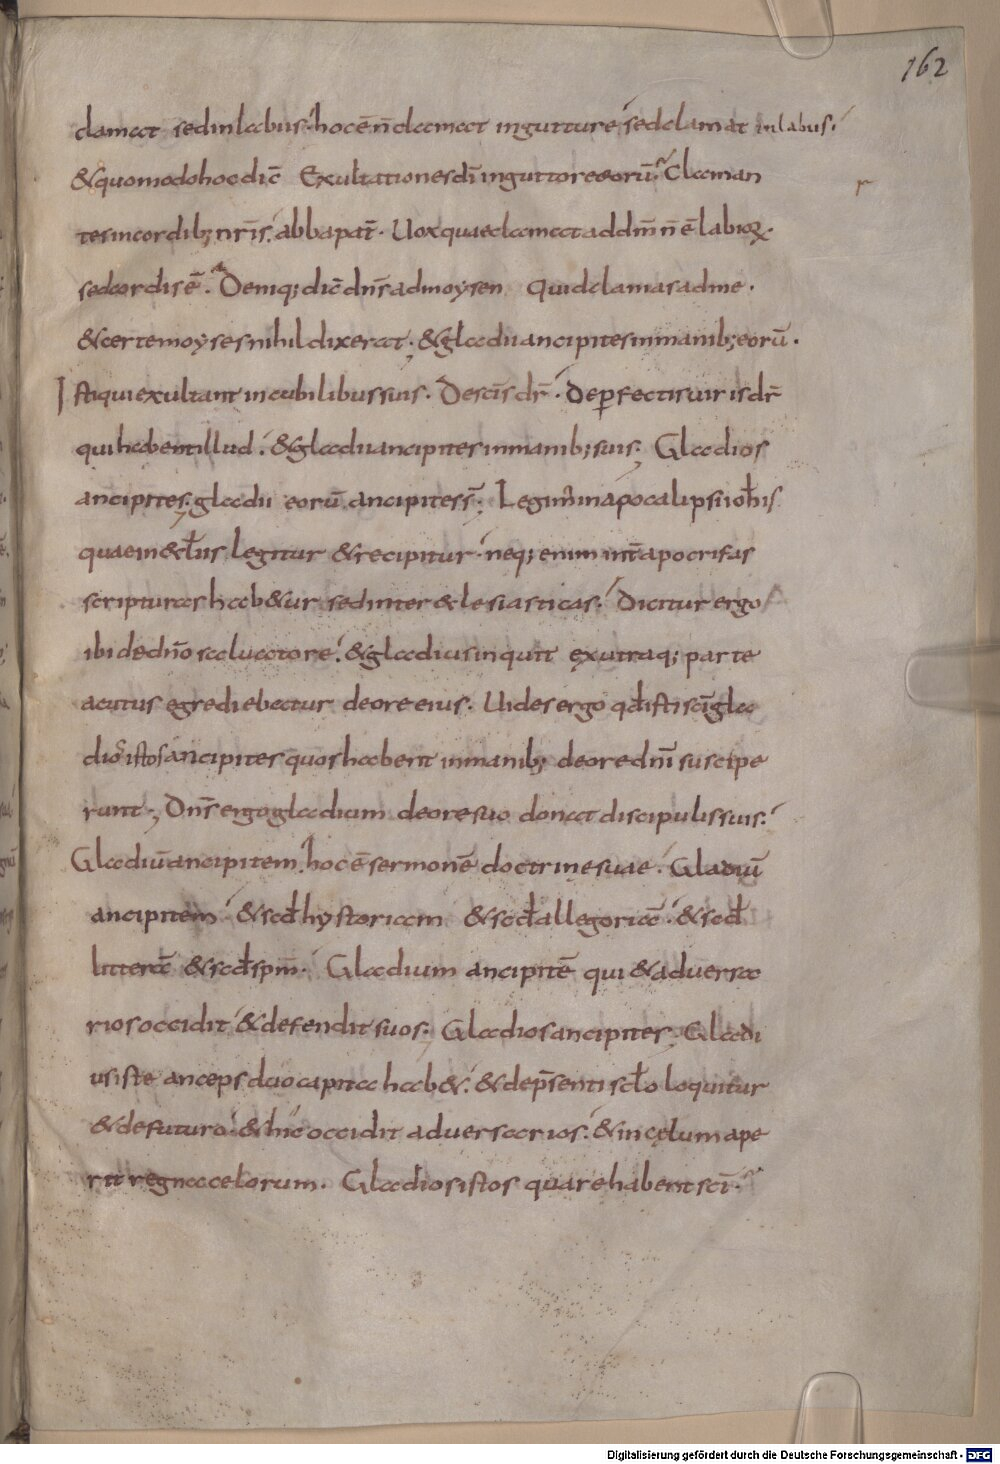 162
clamat sed in labiis. hoc ē n̄ clamat in gutture sed clamat in labiis.
& quomodo hoc dic̄ Exultationes dī in guttore eorū. Claman
tes in cordib; nr̄is. abba pat̄. Uox quae clamat ad dn̄m n̄ ē labioꝝ.
sed cordis ē. Deniq; dic̄ dn̄s ad moysen quid clamas ad me.
& certe moyses nihil dixerat. & gladii ancipites in manib; eorū.
Isti qui exultant in cubilibus suis. De sc̄is dr̄. De ꝑfectis uiris dr̄
qui habent illud. & gladii ancipites in manib; suis. Gladios
ancipites. gladii eorū ancipites s̄. Legim̄ in apocalipsi ioh̄is
quae in eccl̄iis legitur & recipitur. neq; enim int̄ apocrifas
scripturas hab&ur sed inter eclesiasticas. Dicitur ergo
ibi de dn̄o saluatore. & gladius inquit ex utraq; parte
acutus egrediebatur de ore eius. Uides ergo qd̄ isti sc̄i gla
dios istos ancipites quos habent in manib; de ore dn̄i suscipe
runt. Dn̄s ergo gladium de ore suo donat discipulis suis.
Gladiū ancipitem. hoc ē sermonē doctrinę suae. Gladiū
ancipitem & scd̄ hystoriam & scd̄ allegoriā. & scd̄
litterā & scd̄ spm̄. Gladium ancipitē qui & aduersa
rios occidit & defendit suos. Gladios ancipites. Gladi
us iste anceps duo capita hab&. & de p̄senti scl̄o loquitur
& de futuro. & hic occidit aduersarios. & in cęlum ape
rit regna celorum. Gladios istos quare habent sc̄i.
Digitalisierung gefördert durch die Deutsche Forschungsgemeinschaft - DFG